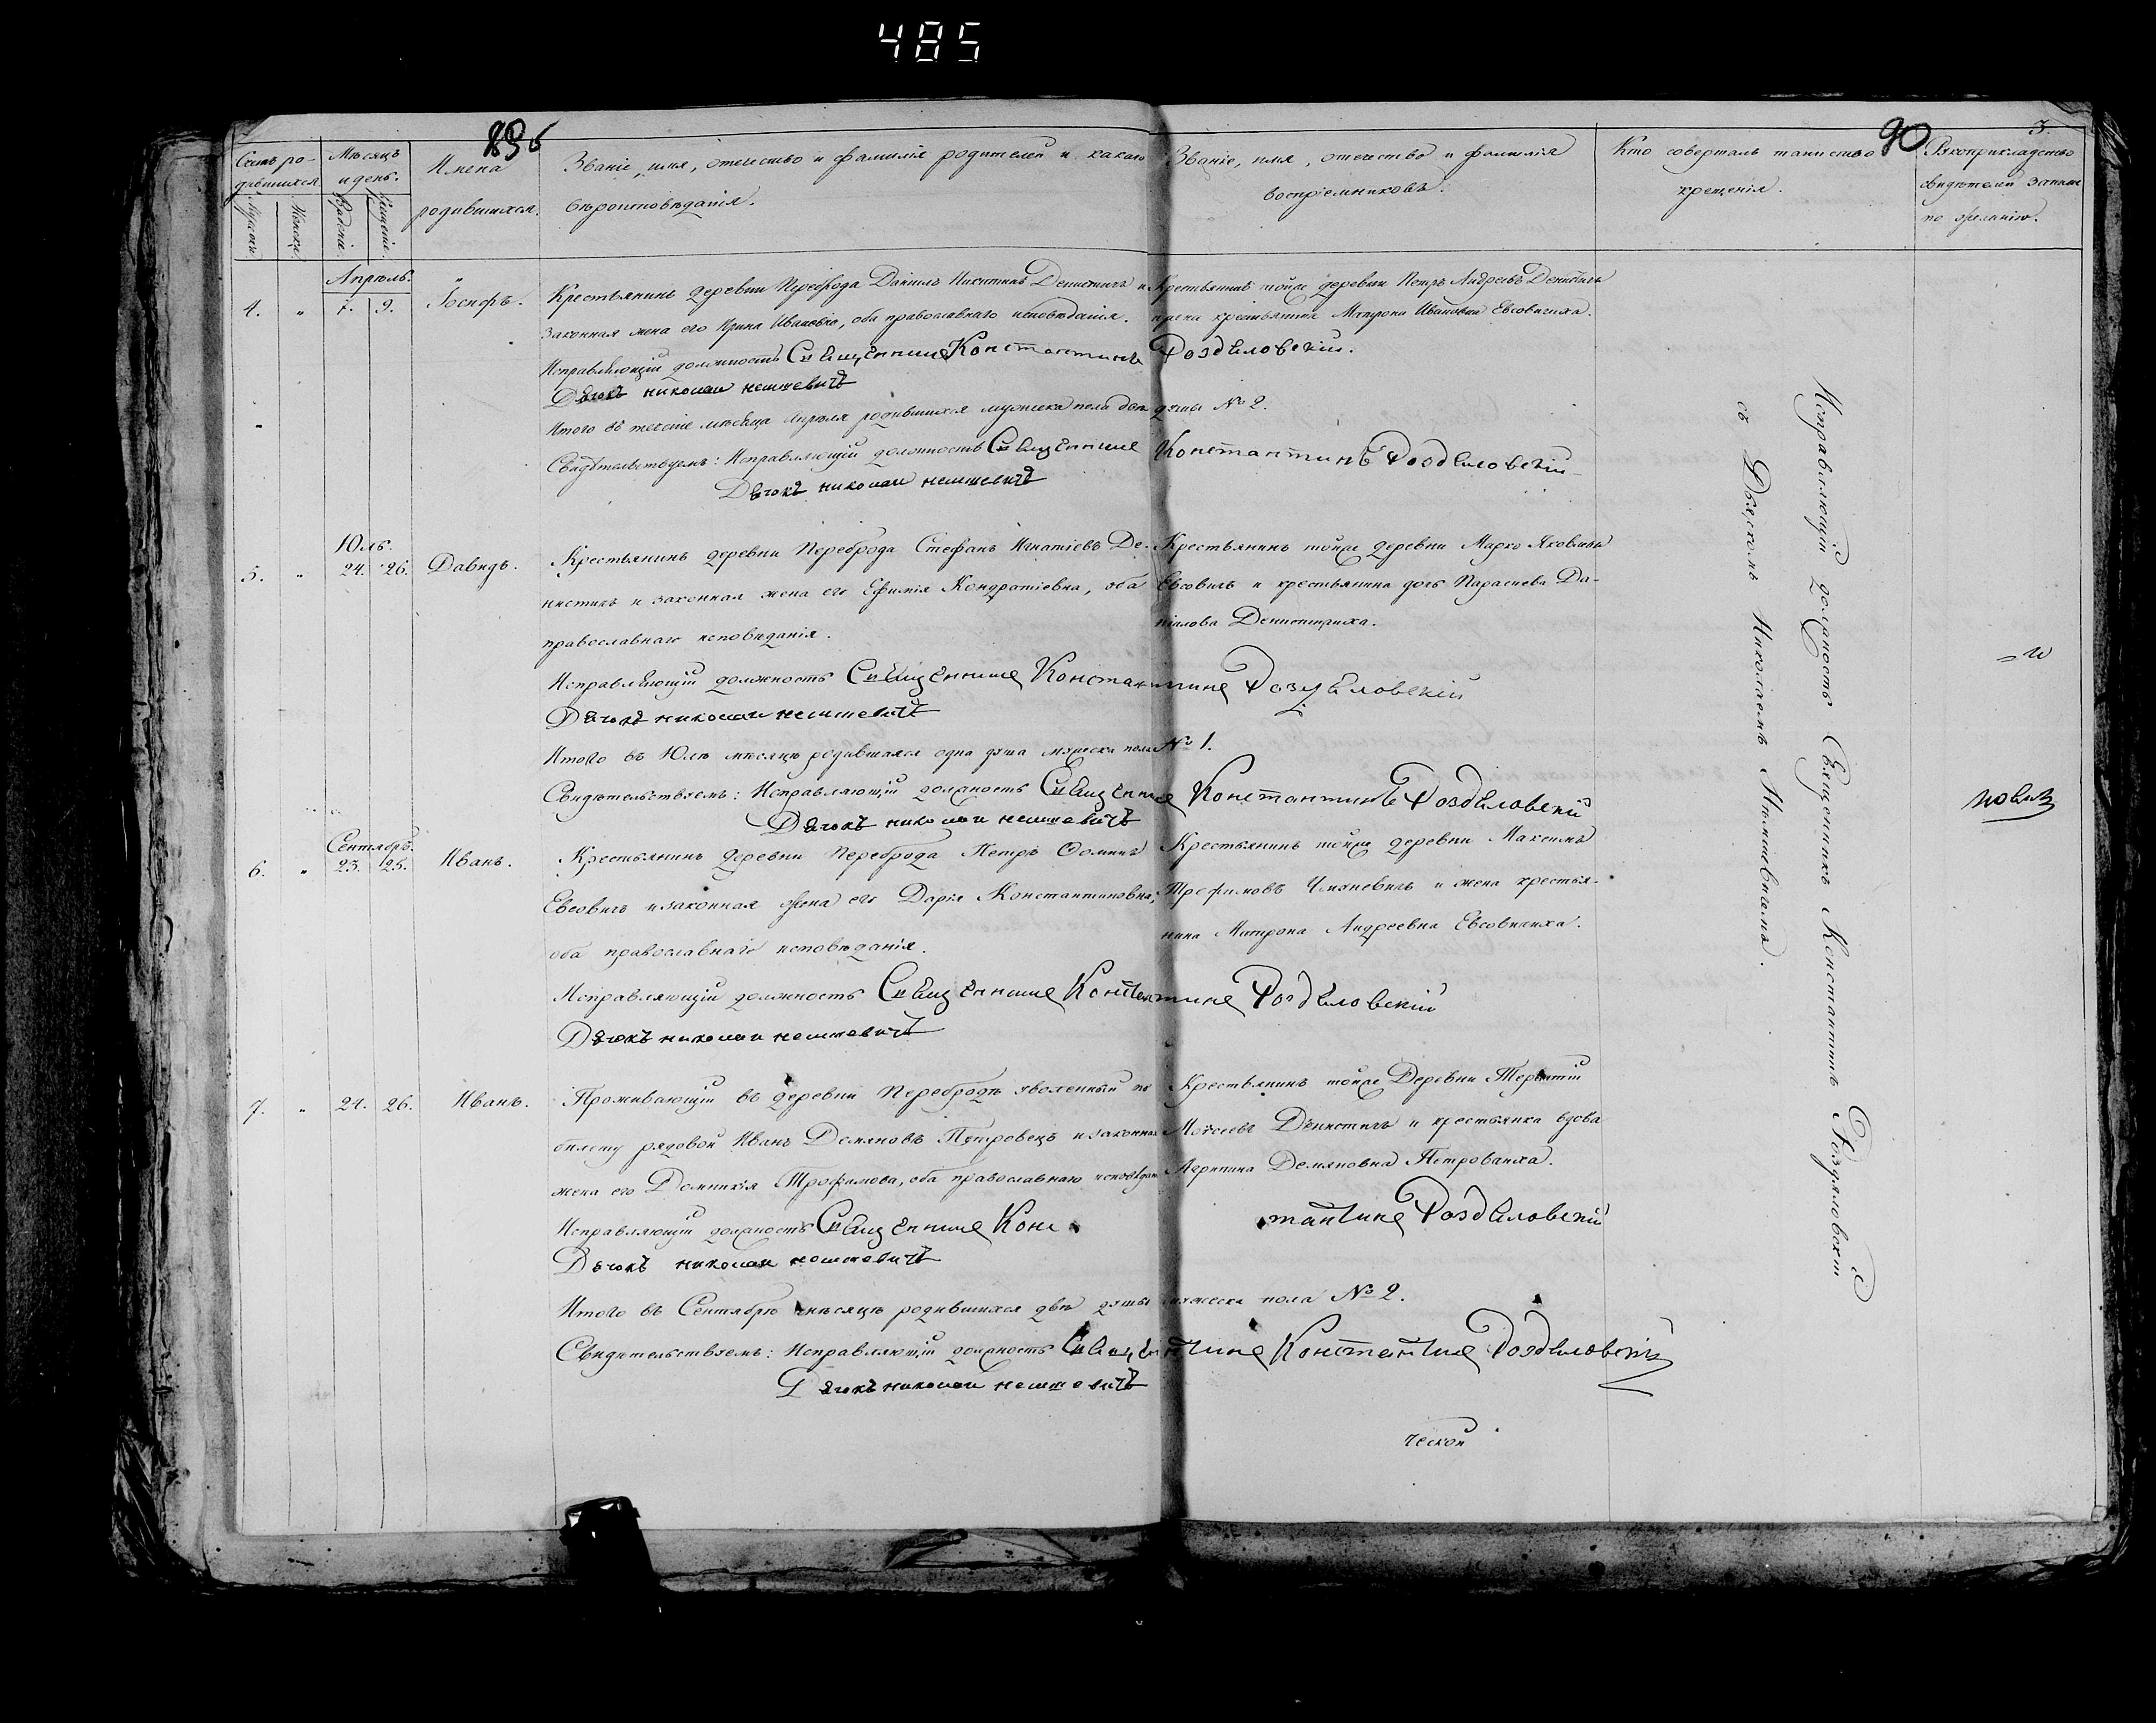 485
89б
90
3.
Счетъ ро-
дившихся.
Мѣсяцъ
и день.
Имена
родившихся.
Званіе, имя, отечество и фамилія родителей и какого
вѣроисповѣданія.
Званіе, имя, отечество и фамилія
воспріемниковъ.
Кто совершалъ таинство
крещенія.
Рукоприкладство
свидѣтелей записи
по желанію.
Апрѣль.
4. " 7. 9. Іосифъ.
Крестьянинъ деревни Переброда Даніилъ Никитинъ Денисчичъ и
законная жена его Ирина Ивановна, оба православнаго исповѣданія.
Крестьянинъ тойже деревни Петръ Андреевъ Денисчичъ
крестьянина Матрона Ивановна Евсовичиха.
Исправляющій должность Священника Константинъ Роздяловскій.
Дьячокъ Николай
Итого въ теченіе мѣсяца Апрѣля родившихся мужеска пола двѣ души № 2.
Свидѣтельствуемъ: Исправляющій должность Священника Константинъ Роздяловскій
Дьячокъ Николай
Юль.
5. " 24. 26. Давидъ.
Крестьянинъ деревни Переброда Стефанъ Игнатіевъ Де-
нисчичъ и законная жена его Ефимія Кондратіевна, оба
православнаго исповѣданія.
Крестьянинъ тойже деревни Марко Яковлевъ
Евсовичъ и крестьянина дочь Параскева Да-
ніилова
Исправляющій должность Священника Константинъ Роздяловскій
Дьячокъ Николай
Итого въ Юлѣ мѣсяцѣ родившаяся одна душа мужеска пола № 1.
Свидѣтельствуемъ: Исправляющій должность Священника Константинъ Роздяловскій
Дьячокъ Николай
Сентябрь.
6. " 23. 25. Иванъ.
Крестьянинъ деревни Переброда Петръ Ѳоминъ
Евсовичъ и законная жена его Дарія Константиновна,
оба православнаго исповѣданія.
Крестьянинъ тойже деревни Максимъ
Трофимовъ и жена крестья-
нина Матрона Андреевна Евсовичиха.
Исправляющій должность Священника Константинъ Роздяловскій
Дьячокъ Николай
7. " 24. 26. Иванъ.
Проживающій въ деревни Перебродѣ уволенный по
билету рядовой Иванъ Демяновъ Петровецъ и законная
жена его Домникія Трофимова, оба православнаго исповѣдан
Крестьянинъ тойже Деревни Терентій
Моисеевъ Денисчичъ и крестьянка вдова
Агрипина Демяновна
Исправляющій должность Священника Константинъ Роздяловскій
Дьячокъ Николай
Итого въ Сентябрѣ мѣсяцѣ родившихся двѣ души мужеска пола № 2.
Свидѣтельствуемъ: Исправляющій должность Священника Константинъ Роздяловскій
Дьячокъ Николай
ческой
Исправляющій должность Священникъ Константинъ Роздяловскій
съ Дьячкомъ Николаемъ